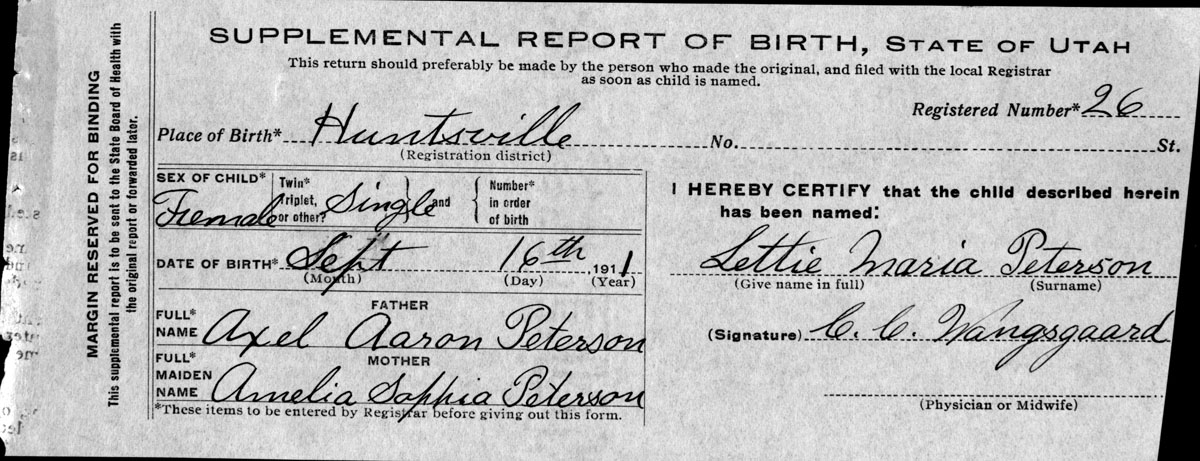 SUPPLEMENTAL REPORT OF BIRTH, STATE OF UTAH
This return should preferably be made by the person who made the original, and filed with the local Registrar
as soon as child is named.
Registered Number* 26
Place of Birth* Huntsville No. St.
(Registration district)
SEX OF CHILD* Female
Twin* Triplet, or other? Single and
Number* in order of birth
DATE OF BIRTH* Sept 16th, 1911
(Month) (Day) (Year)
FATHER
FULL* NAME Axel Aaron Peterson
MOTHER
FULL* MAIDEN NAME Amelia Sophia Peterson
*These items to be entered by Registrar before giving out this form.
I HEREBY CERTIFY that the child described herein
has been named:
Lettie Maria Peterson
(Give name in full) (Surname)
(Signature) C. C. Wangsgaard
(Physician or Midwife)
MARGIN RESERVED FOR BINDING
This supplemental report is to be sent to the State Board of Health with
the original report or forwarded later.